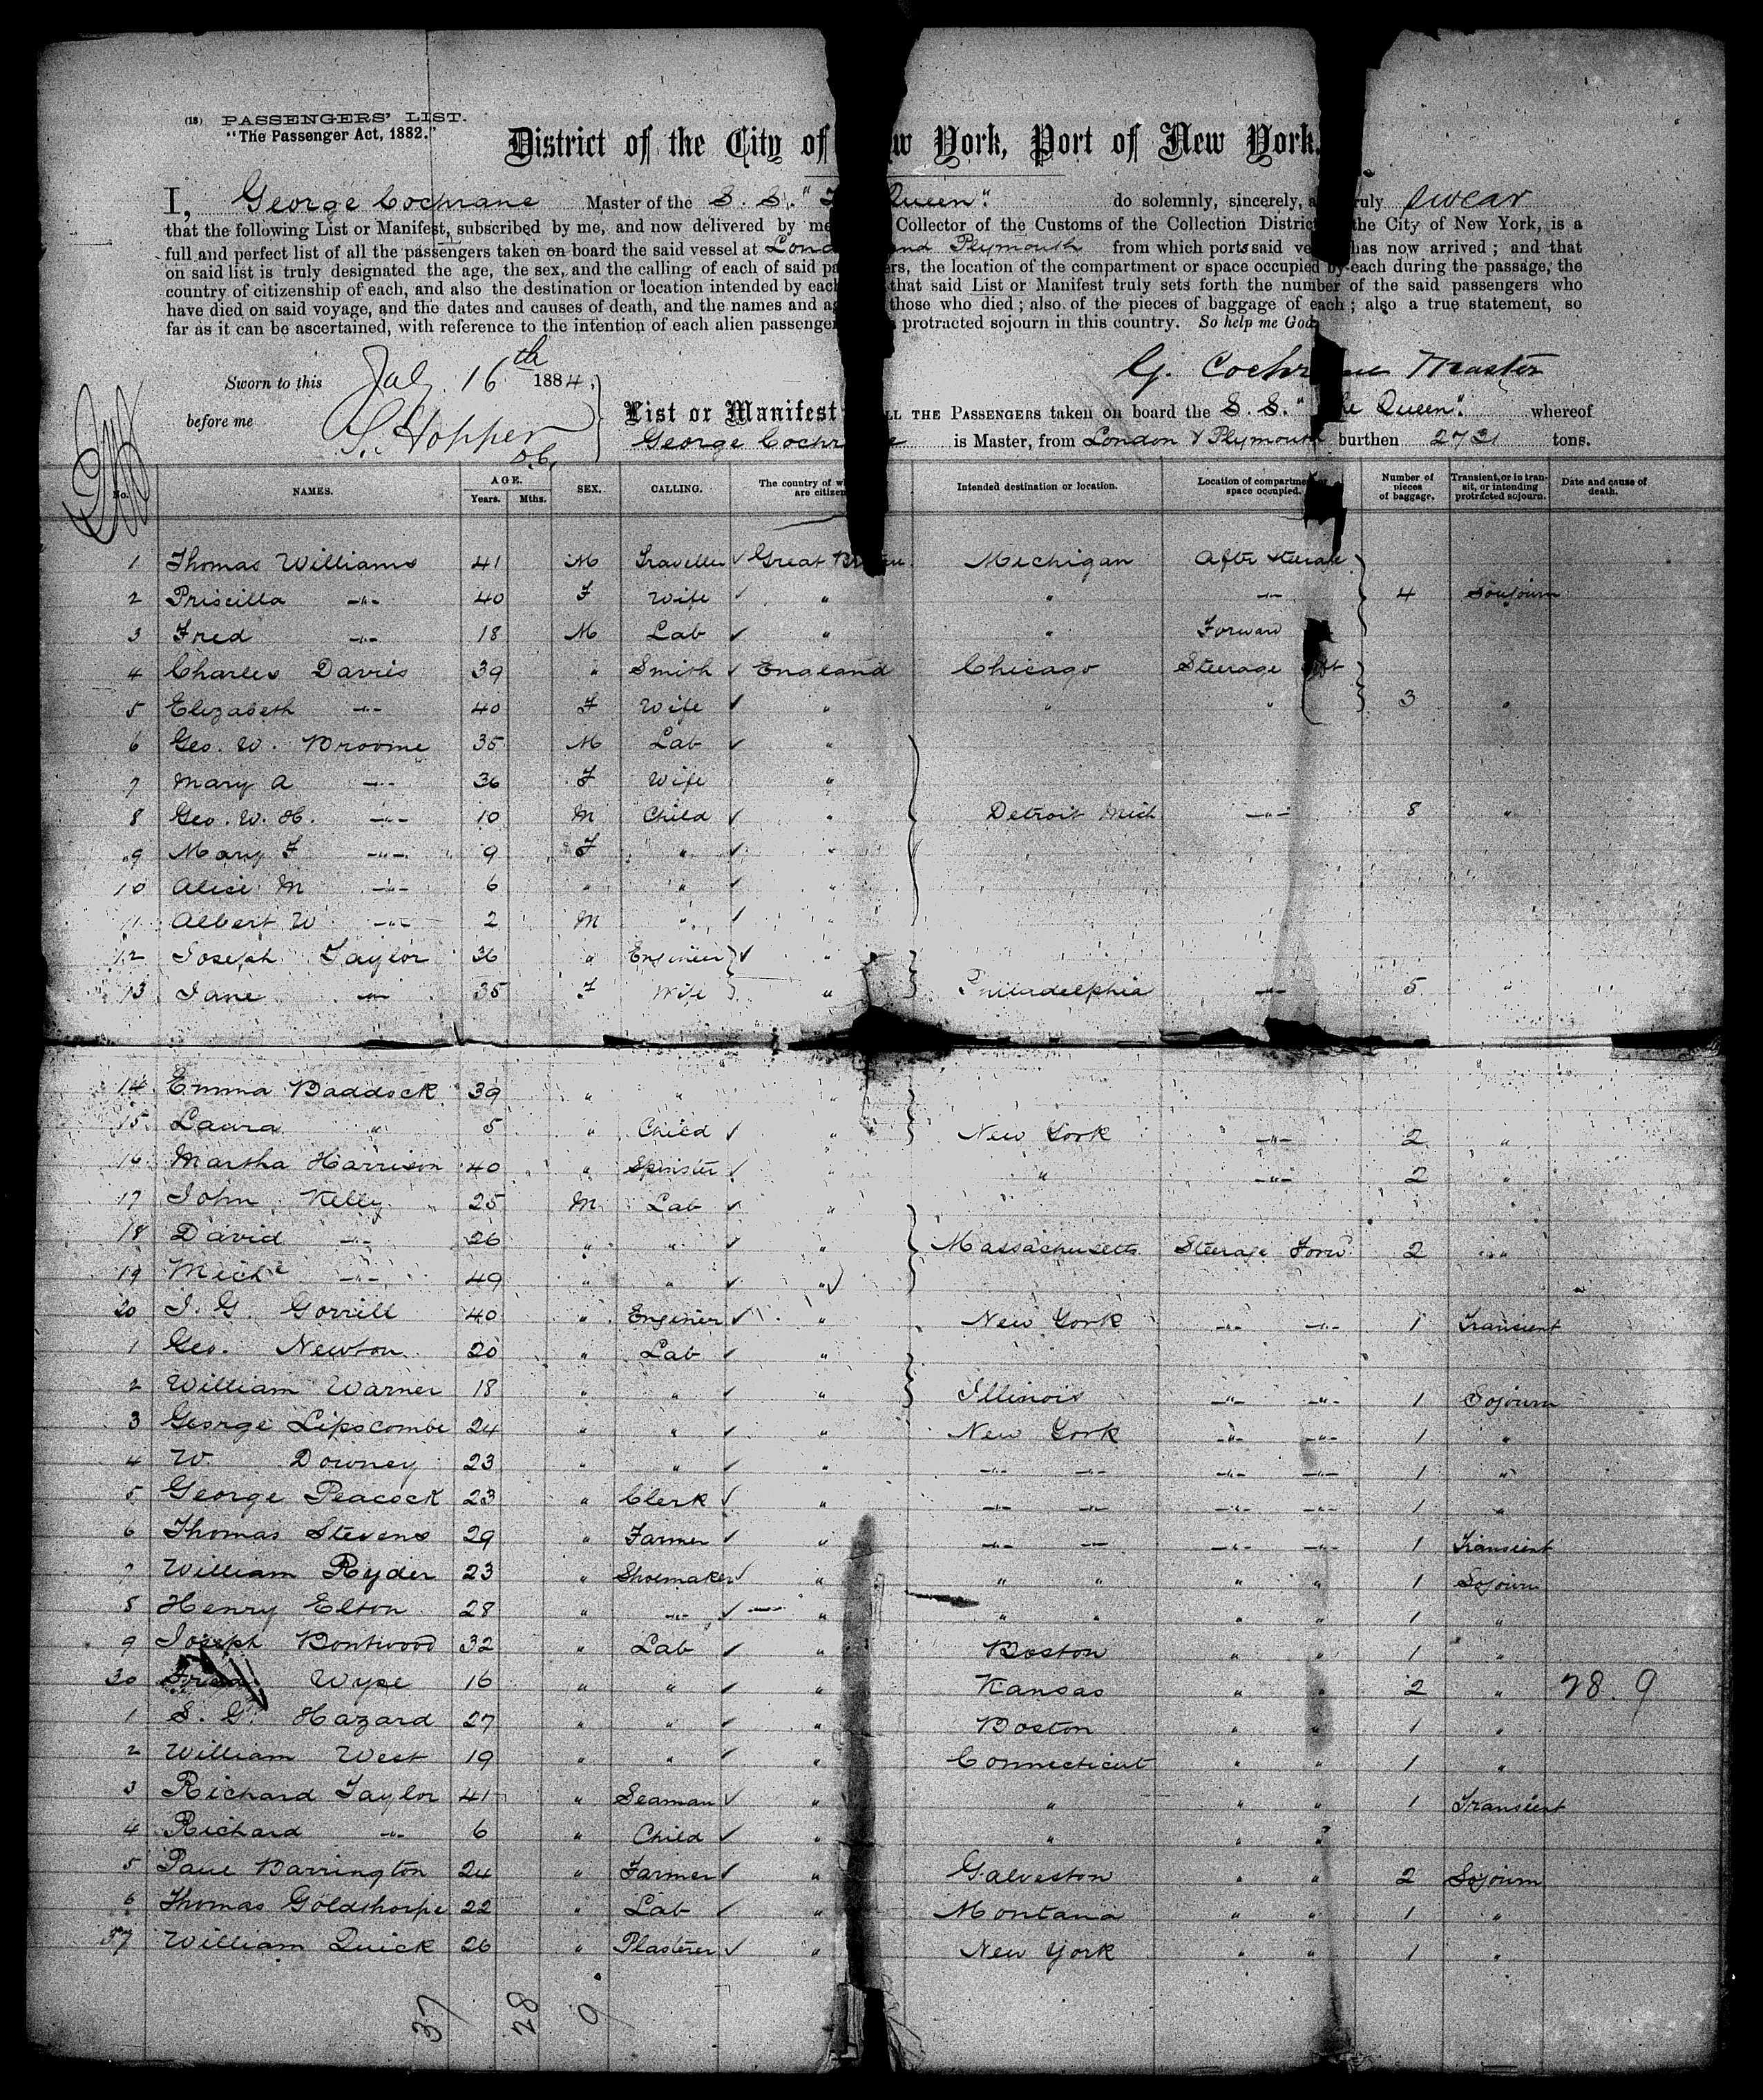 (18) PASSENGERS' LIST.
"The Passenger Act, 1882."
District of the City of New York, Port of New York.
I, George Cochrane Master of the S. S. "The Queen". do solemnly, sincerely, and truly swear
that the following List or Manifest, subscribed by me, and now delivered by me Collector of the Customs of the Collection District the City of New York, is a
full and perfect list of all the passengers taken on board the said vessel at London and Plymouth from which ports said vessel has now arrived; and that
on said list is truly designated the age, the sex, and the calling of each of said passengers, the location of the compartment or space occupied by each during the passage, the
country of citizenship of each, and also the destination or location intended by each that said List or Manifest truly sets forth the number of the said passengers who
have died on said voyage, and the dates and causes of death, and the names and ages those who died; also of the pieces of baggage of each; also a true statement, so
far as it can be ascertained, with reference to the intention of each alien passenger protracted sojourn in this country. So help me God.
G. Cochrane Master
Sworn to this July 16th 1884,
before me S. Hopper
D.C.
List or Manifest ALL THE PASSENGERS taken on board the S. S. "The Queen". whereof
George Cochrane is Master, from London & Plymouth burthen 2731 tons.
No. NAMES. AGE. Years. Mths. SEX. CALLING. The country of which are citizens Intended destination or location. Location of compartment space occupied. Number of pieces of baggage. Transient, or in transit, or intending protracted sojourn. Date and cause of death.
1 Thomas Williams 41 M Traveller ✓ Great Britain Michigan After Steerage
2 Priscilla -"- 40 F Wife ✓ " " -"- 4 Soujourn
3 Fred -"- 18 M Lab ✓ " " Forward
4 Charles Davies 39 " Smith ✓ England Chicago Steerage Aft
5 Elizabeth -"- 40 F Wife ✓ " " " 3 "
6 Geo. W. Brovine 35 M Lab ✓ "
7 Mary A -"- 36 F Wife "
8 Geo. W. H. -"- 10 M Child ✓ " Detroit Mich -"- 8 "
9 Mary F -"- 9 F " ✓ "
10 Alice M -"- 6 " " ✓ "
11 Albert W -"- 2 M " ✓ "
12 Joseph Taylor 36 " Engineer ✓ "
13 Jane -"- 35 F Wife " Philadelphia -"- 5 "
14 Emma Baddock 39 " " "
15 Laura " 5 " Child ✓ " New York -"- 2 "
16 Martha Harrison 40 " Spinster ✓ " " -"- 2 "
17 John Kelly 25 M Lab ✓ "
18 David -"- 26 " " ✓ " Massachusetts Steerage Forwd 2 "
19 Michl -"- 49 " " ✓ "
20 J. G. Gorrill 40 " Enginer ✓ " New York -"- -"- 1 Transient
1 Geo. Newton 20 " Lab ✓ "
2 William Warner 18 " " ✓ " Illinois -"- -"- 1 Sojourn
3 George Lipscombe 24 " " ✓ " New York -"- -"- 1 "
4 W. Downey 23 " " ✓ " -"- -"- -"- -"- 1 "
5 George Peacock 23 " Clerk ✓ " -"- -"- -"- -"- 1 "
6 Thomas Stevens 29 " Farmer ✓ " -"- -"- -"- -"- 1 Transient
7 William Ryder 23 " Shoemaker ✓ " " " " " 1 Sojourn
8 Henry Elton 28 " -"- ✓ " " " " " 1 "
9 Joseph Bontwood 32 " Lab ✓ " Boston " " 1 "
30 Fred Wyse 16 " " ✓ " Kansas " " 2 " 28. 9
1 S. G. Hazard 27 " " ✓ " Boston " " 1 "
2 William West 19 " " ✓ " Connecticut " " 1 "
3 Richard Taylor 41 " Seaman ✓ " " " " 1 Transient
4 Richard -"- 6 " Child ✓ " " " "
5 Paul Barrington 24 " Farmer ✓ " Galveston " " 2 Sojourn
6 Thomas Goldthorpe 22 " Lab ✓ " Montana " " 1 "
37 William Quick 26 " Plasterer ✓ " New York " " 1 "
37 28 9